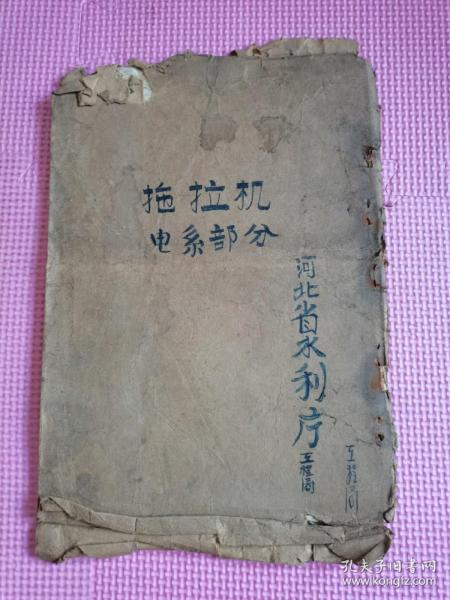 拖拉机
电系部分
河北省水利厅
工程局
工程局
孔夫子旧书网
www.kongfz.com